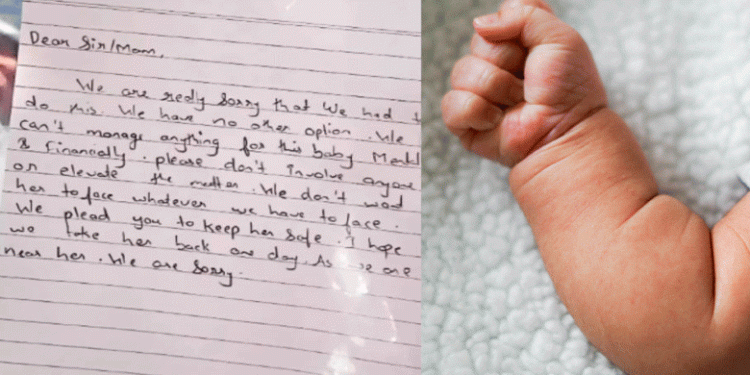 Dear Sir/Mam,
We are redly sorry that we had t
do this. We have no other option. We
can't manage anything for this baby Mentl
& financially. please don't involve anyone
or elevate the matter. We don't
her to face whatever we have to face.
We plead you to keep her safe. I hope
we take her back one day. As we are
near her. We are sorry.